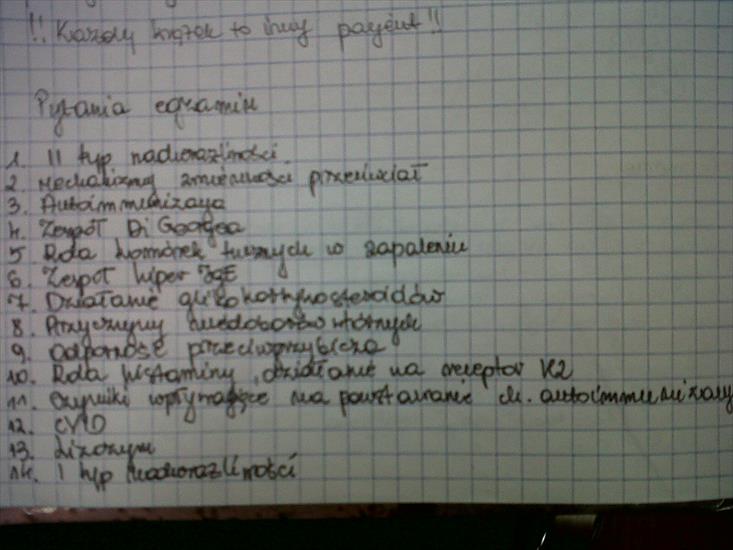 !! Każdy krążek to inny pacjent!!
Pytania egzamin
1. II typ nadwrażliwości
2. Mechanizmy zmienności przeciwciał
3. Autoimmunizacja
4. Zespół Di Georgea
5 Rola komórek tucznych w zapaleniu
6. Zespół hiper IgE
7. Działanie glikokortykosteroidów
8. Przyczyny niedoborów wtórnych
9. Odporność przeciwgrzybicza
10. Rola histaminy, działanie na receptor H2
11. Czynniki wpływające na powstawanie ch. autoimmunizacy
12. CVID
13. Lizozym
14. I typ nadwrażliwości